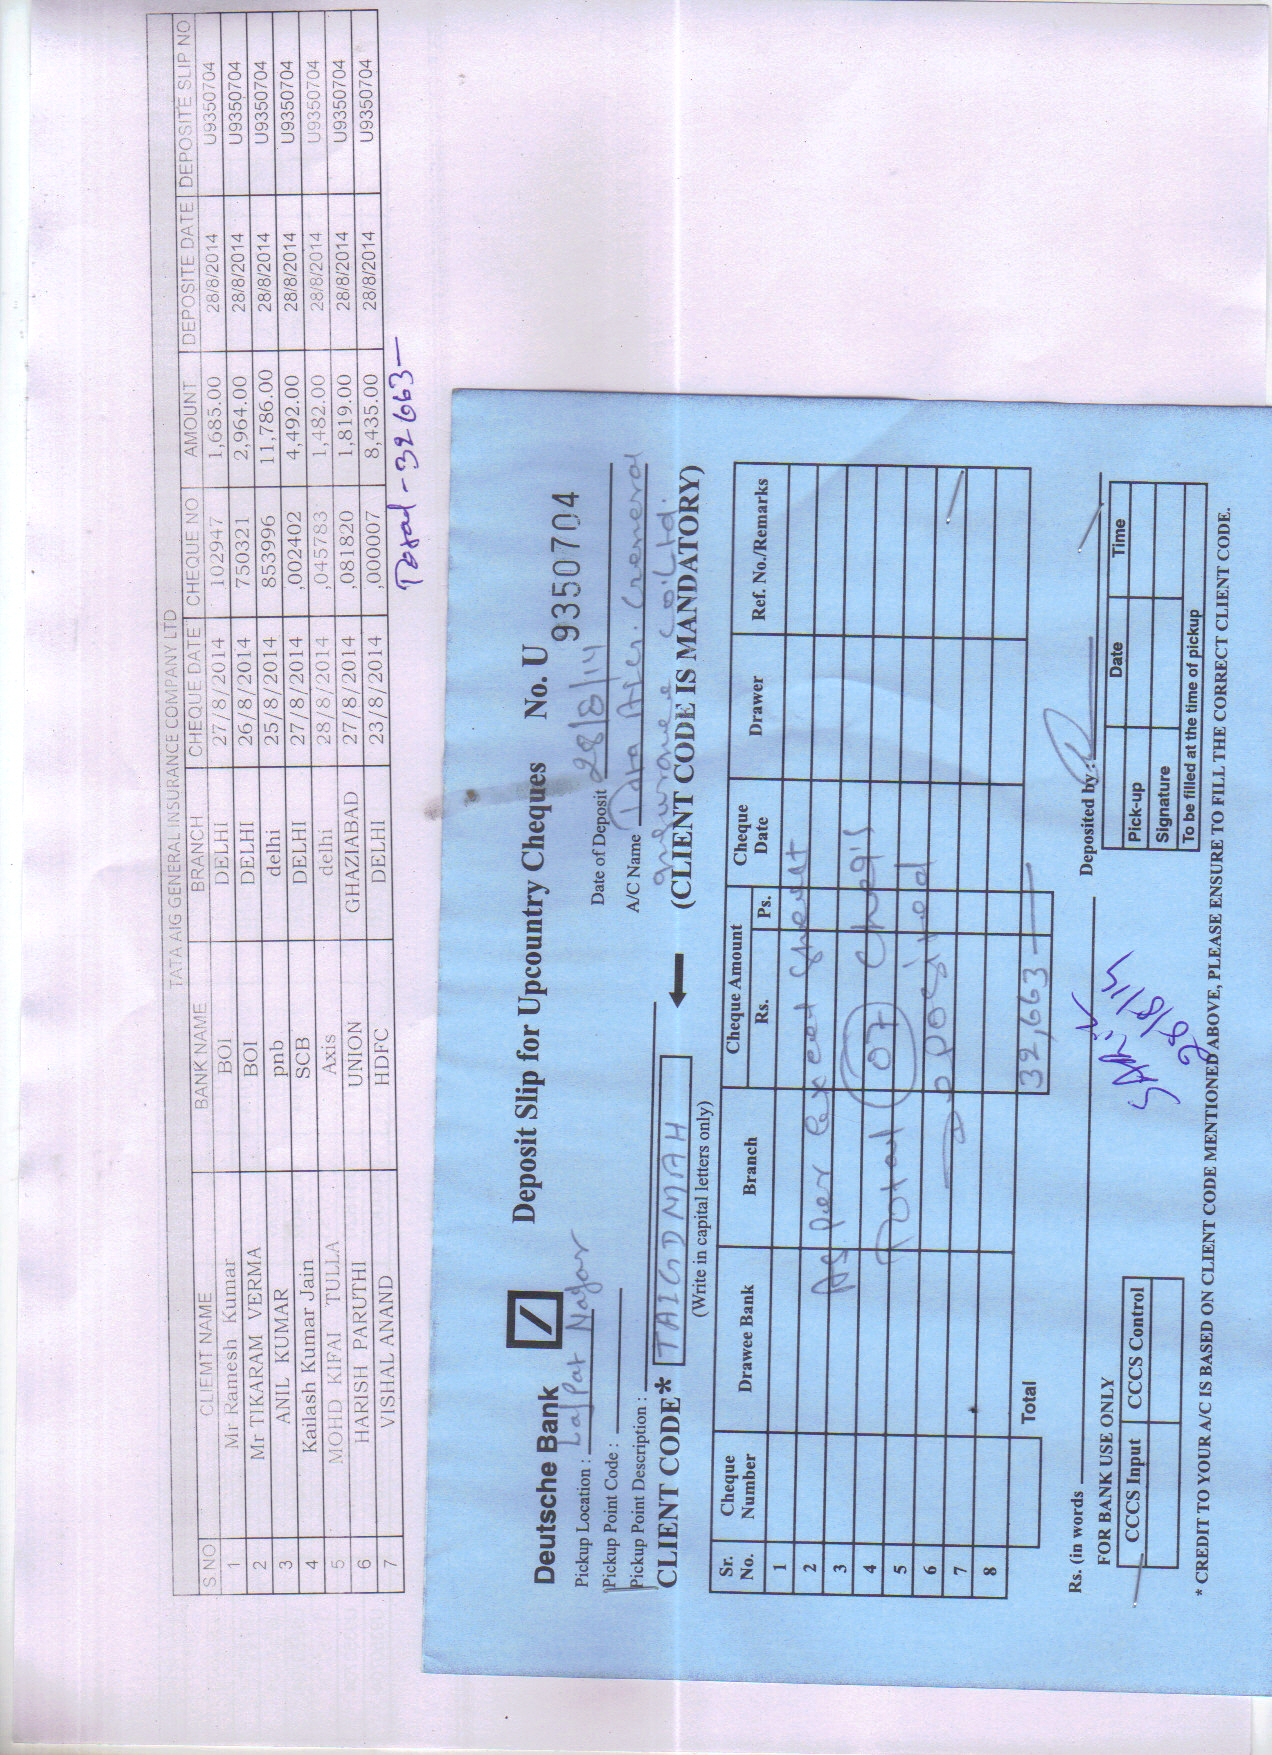 TATA AIG GENERAL INSURANCE COMPANY LTD
S.NO CLIEMT NAME BANK NAME BRANCH CHEQUE DATE CHEQUE NO AMOUNT DEPOSITE DATE DEPOSITE SLIP NO
1 Mr Ramesh Kumar BOI DELHI 27/8/2014 102947 1,685.00 28/8/2014 U9350704
2 Mr TIKARAM VERMA BOI DELHI 26/8/2014 750321 2,964.00 28/8/2014 U9350704
3 ANIL KUMAR pnb delhi 25/8/2014 853996 11,786.00 28/8/2014 U9350704
4 Kailash Kumar Jain SCB DELHI 27/8/2014 ,002402 4,492.00 28/8/2014 U9350704
5 MOHD KIFAI TULLA Axis delhi 28/8/2014 ,045783 1,482.00 28/8/2014 U9350704
6 HARISH PARUTHI UNION GHAZIABAD 27/8/2014 ,081820 1,819.00 28/8/2014 U9350704
7 VISHAL ANAND HDFC DELHI 23/8/2014 ,000007 8,435.00 28/8/2014 U9350704
Total - 32663-
Deutsche Bank Deposit Slip for Upcountry Cheques No. U 9350704
Pickup Location : Lajpat Nagar Date of Deposit 28/8/14
Pickup Point Code :
Pickup Point Description : A/C Name Tata AIG General
Insurance Co. Ltd.
CLIENT CODE* TAIGDMAH (CLIENT CODE IS MANDATORY)
(Write in capital letters only)
Sr. No. Cheque Number Drawee Bank Branch Cheque Amount Rs. Ps. Cheque Date Drawer Ref. No./Remarks
1
2 As Per Excel Sheet
3
4 Total 07 Chq's
5
6 Deposited
7
8
Total 32,663
Rs. (in words Deposited by :
FOR BANK USE ONLY
CCCS Input CCCS Control
28/8/14
Date Time
Pick-up
Signature
To be filled at the time of pickup
* CREDIT TO YOUR A/C IS BASED ON CLIENT CODE MENTIONED ABOVE, PLEASE ENSURE TO FILL THE CORRECT CLIENT CODE.